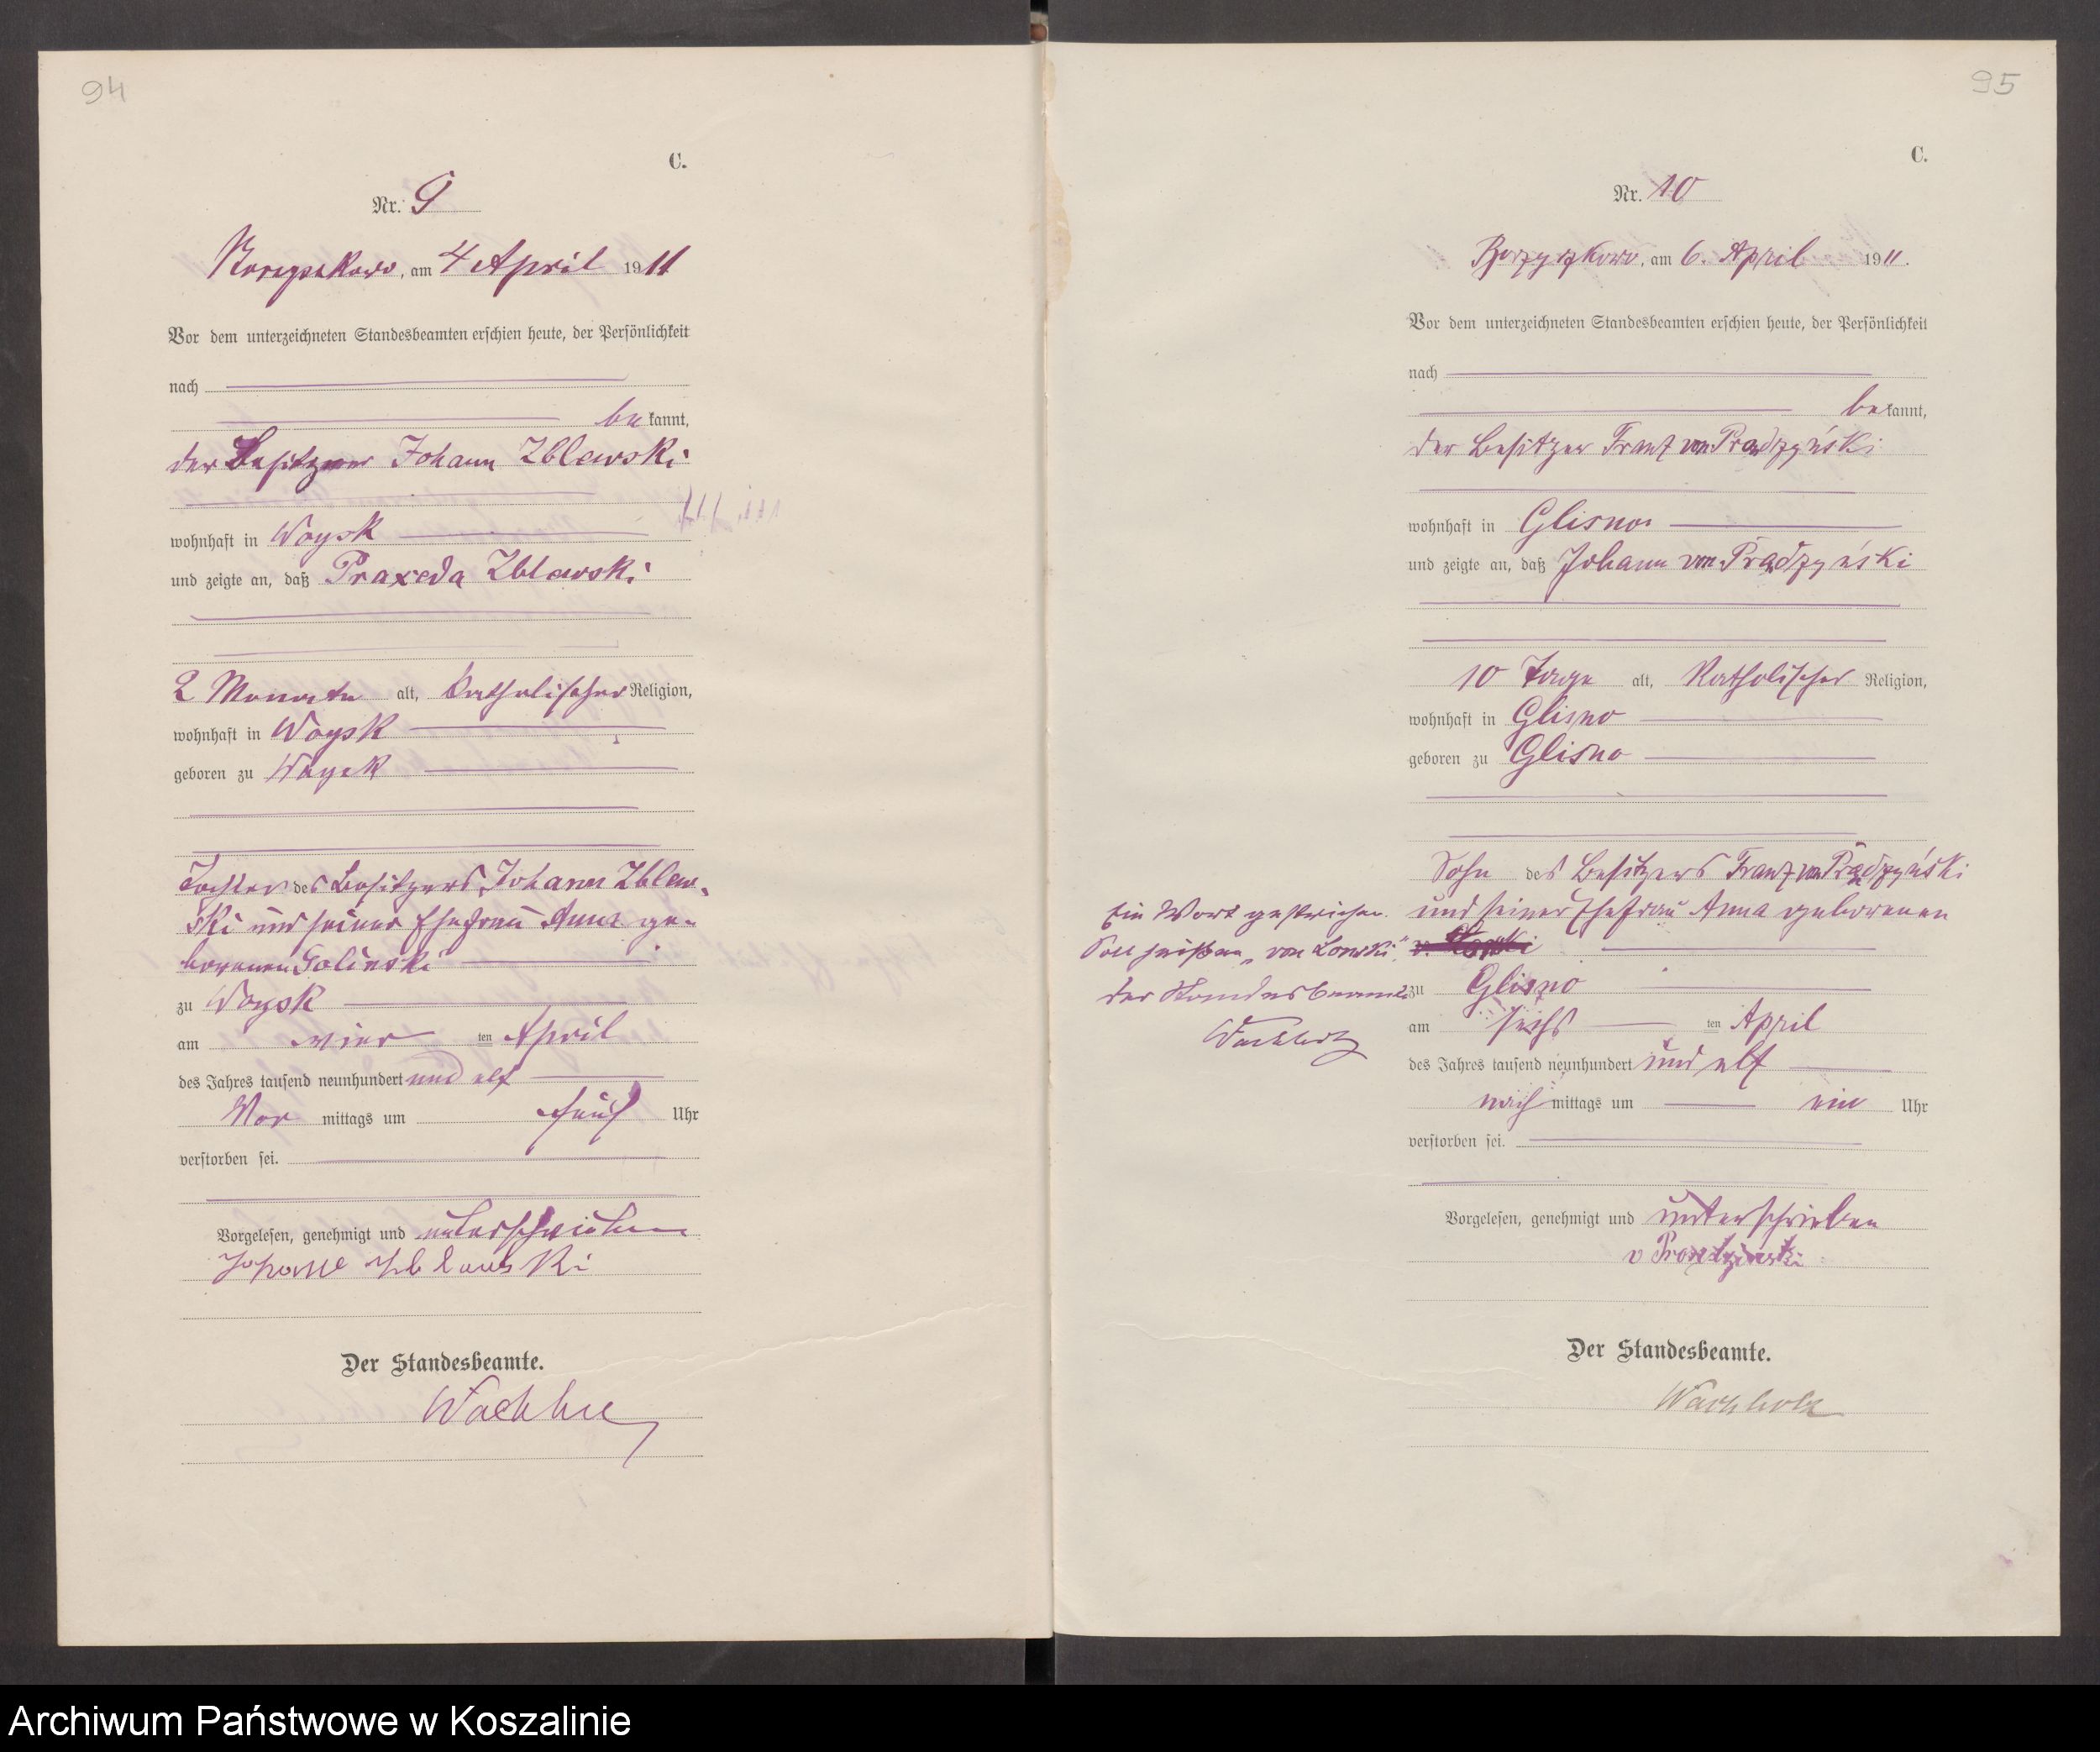 94
C.
Nr. 9
Borzyszkowo, am 4 April 1911
Vor dem unterzeichneten Standesbeamten erschien heute, der Persönlichkeit
nach
bekannt,
der Besitzer Johann Zblewski
wohnhaft in Woysk
und zeigte an, daß Praxeda Zblewski
2 Monate alt, katholischer Religion,
wohnhaft in Woysk
geboren zu Woysk
Tochter des Besitzers Johann Zblew-
ski und seiner Ehefrau Anna ge-
borenen Golinski
zu Woysk
am vier ten April
des Jahres tausend neunhundert und elf
Vor mittags um fünf Uhr
verstorben sei.
Vorgelesen, genehmigt und unterschrieben
Johann Zblewski
Der Standesbeamte.
Wachholz
95
C.
Nr. 10
Borzyszkowo, am 6. April 1911.
Vor dem unterzeichneten Standesbeamten erschien heute, der Persönlichkeit
nach
bekannt,
der Besitzer Franz von Prądzyński
wohnhaft in Glisno
und zeigte an, daß Johann von Prądzyński
10 Tage alt, katholischer Religion,
wohnhaft in Glisno
geboren zu Glisno
Sohn des Besitzers Franz von Prądzyński
und seiner Ehefrau Anna geborenen
Ein Wort gestrichen.
Soll heißen „von Lonski"
der Standesbeamte
Wachholz
zu Glisno
am sechs ten April
des Jahres tausend neunhundert und elf
nach mittags um ein Uhr
verstorben sei.
Vorgelesen, genehmigt und unterschrieben
v Prondzinski
Der Standesbeamte.
Wachholz
Archiwum Państwowe w Koszalinie